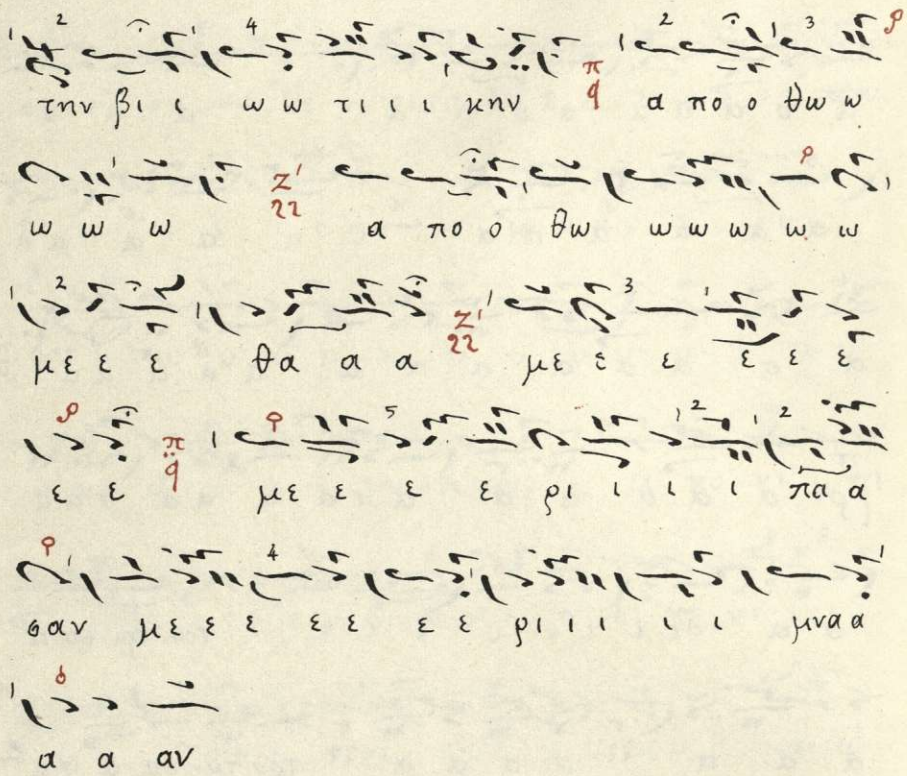 την βι ι ω ω τι ι ι κην π q α πο ο θω ω
ω ω ω Ζ' α πο ο θω ω ω ω ω ω
με ε ε θα α α Ζ' με ε ε ε ε ε
ε ε π q με ε ε ε ρι ι ι ι ι πα α
σαν με ε ε ε ε ε ε ρι ι ι ι ι μνα α
α α αν